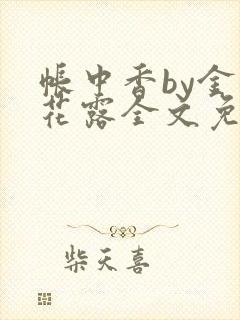 帐中香by金
花露全文免
柴天喜